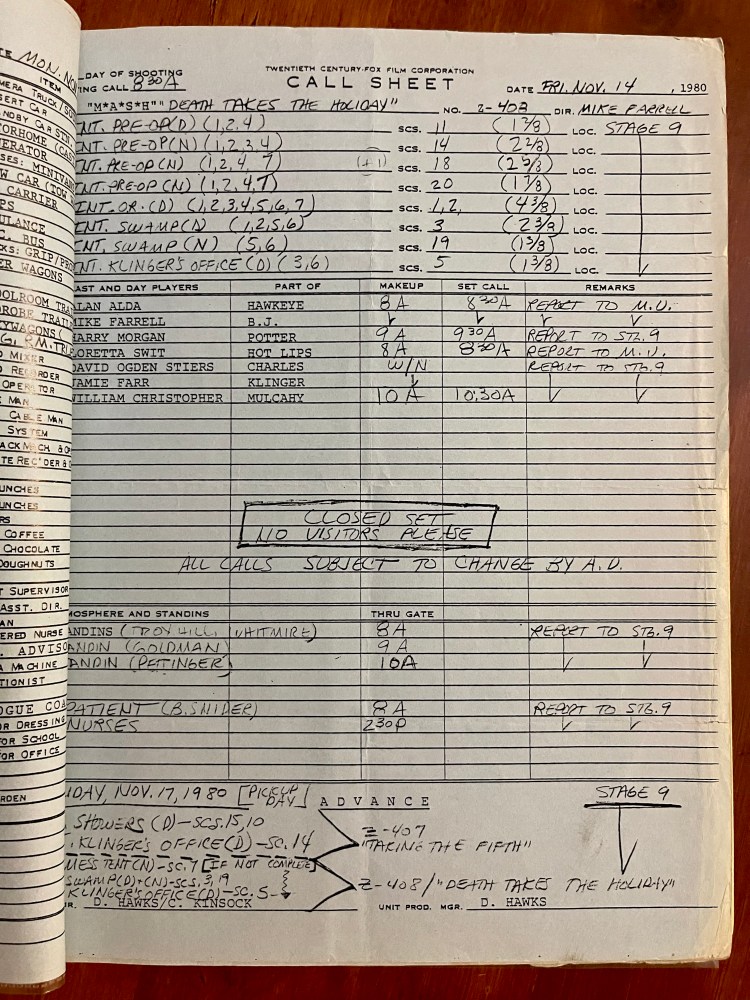 TWENTIETH CENTURY-FOX FILM CORPORATION
DAY OF SHOOTING
CALL SHEET
ING CALL 8 30A
DATE FRI. NOV. 14, 1980
"M*A*S*H" "DEATH TAKES THE HOLIDAY" NO. Z-408 DIR. MIKE FARRELL
INT. PRE-OP(D) (1,2,4) SCS. 11 (1 2/8) LOC. STAGE 9
INT. PRE-OP(N) (1,2,3,4) SCS. 14 (2 2/8) LOC.
INT. PRE-OP(N) (1,2,4, 7) (+1) SCS. 18 (2 5/8) LOC.
INT. PRE-OP (N) (1,2,4,7) SCS. 20 (1 7/8) LOC.
INT. O.R. (D) (1,2,3,4,5,6,7) SCS. 1,2, (4 3/8) LOC.
INT. SWAMP(D) (1,2,5,6) SCS. 3 (2 3/8) LOC.
INT. SWAMP (N) (5,6) SCS. 19 (1 3/8) LOC.
INT. KLINGER'S OFFICE (D) (3,6) SCS. 5 (1 3/8) LOC.
AST AND DAY PLAYERS PART OF MAKEUP SET CALL REMARKS
ALAN ALDA HAWKEYE 8A 8 30A REPORT TO M.U.
MIKE FARRELL B.J.
HARRY MORGAN POTTER 9A 9 30A REPORT TO STG. 9
LORETTA SWIT HOT LIPS 8A 8 30A REPORT TO M.U.
DAVID OGDEN STIERS CHARLES W/N REPORT TO STG. 9
JAMIE FARR KLINGER
WILLIAM CHRISTOPHER MULCAHY 10A 10:30A
CLOSED SET
NO VISITORS PLEASE
ALL CALLS SUBJECT TO CHANGE BY A.D.
MOSPHERE AND STANDINS THRU GATE
ANDINS (TROY HILL, WHITMIRE) 8A REPORT TO STG. 9
ANDIN (GOLDMAN) 9A
ANDIN (PETINGER) 10A
PATIENT (B. SNIDER) 8A REPORT TO STG. 9
NURSES 2 30P
DAY, NOV. 17, 1980 [PICKUP DAY] ADVANCE STAGE 9
SHOWERS (D)-SCS. 15, 10
KLINGER'S OFFICE (D)-SC. 14
Z-407
"TAKING THE FIFTH"
MESS TENT (N)-SC. 7 [IF NOT COMPLETE]
SWAMP(D)+(N)-SCS. 3, 19
KLINGER'S OFFICE(D)-SC. 5
Z-408/"DEATH TAKES THE HOLIDAY"
R. D. HAWKS/C. KINSOCK UNIT PROD. MGR. D. HAWKS
MON. NO
ITEM
MERA TRUCK/
SERT CAR
NDBY CAR
ORHOME
ERATOR
SES: MINIVA
W CAR (TOW
CARRIER
PS
ULANCE
BUS
KS: GRIP/PR
ER WAGONS
OOLROOM TRA
DROBE TRAIL
YWAGONS
D MIXER
D RECORDER
OPERATOR
MAN
CABLE MAN
SYSTEM
ACK MCH. & OP
TE REC'DER & O
UNCHES
UNCHES
RS
COFFEE
CHOCOLATE
DOUGHNUTS
T SUPERVISOR
ASST. DIR.
AN
ERED NURSE
. ADVISO
A MACHINE
TIONIST
OGUE COA
OR DRESSING
FOR SCHOOL
FOR OFFICE
RDEN